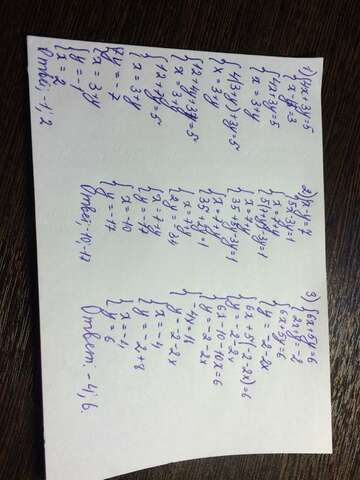 1) {4x+3y=5
x-y=3
{4x+3y=5
x=3+y
{4(3+y)+3y=5
x=3+y
{12+4y+3y=5
x=3+y
{12+7y=5
x=3+y
{7y=-7
x=3+y
{y=-1
x=2
Ответ: -1; 2
2) {x-y=7
5x-3y=1
{5(7+y)-3y=1
x=7+y
{35+5y-3y=1
x=7+y
{35+2y=1
x=7+y
{2y=-34
x=7+y
{y=-17
x=-10
y=-17
Ответ: -10; -17
3) {6x+5y=6
2x+y=-2
{6x+5y=6
y=-2-2x
{6x+5(-2-2x)=6
y=-2-2x
{6x-10-10x=6
y=-2-2x
{-4x=16
y=-2-2x
{x=-4
y=-2+8
{x=-4
y=6
Ответ: -4; 6.